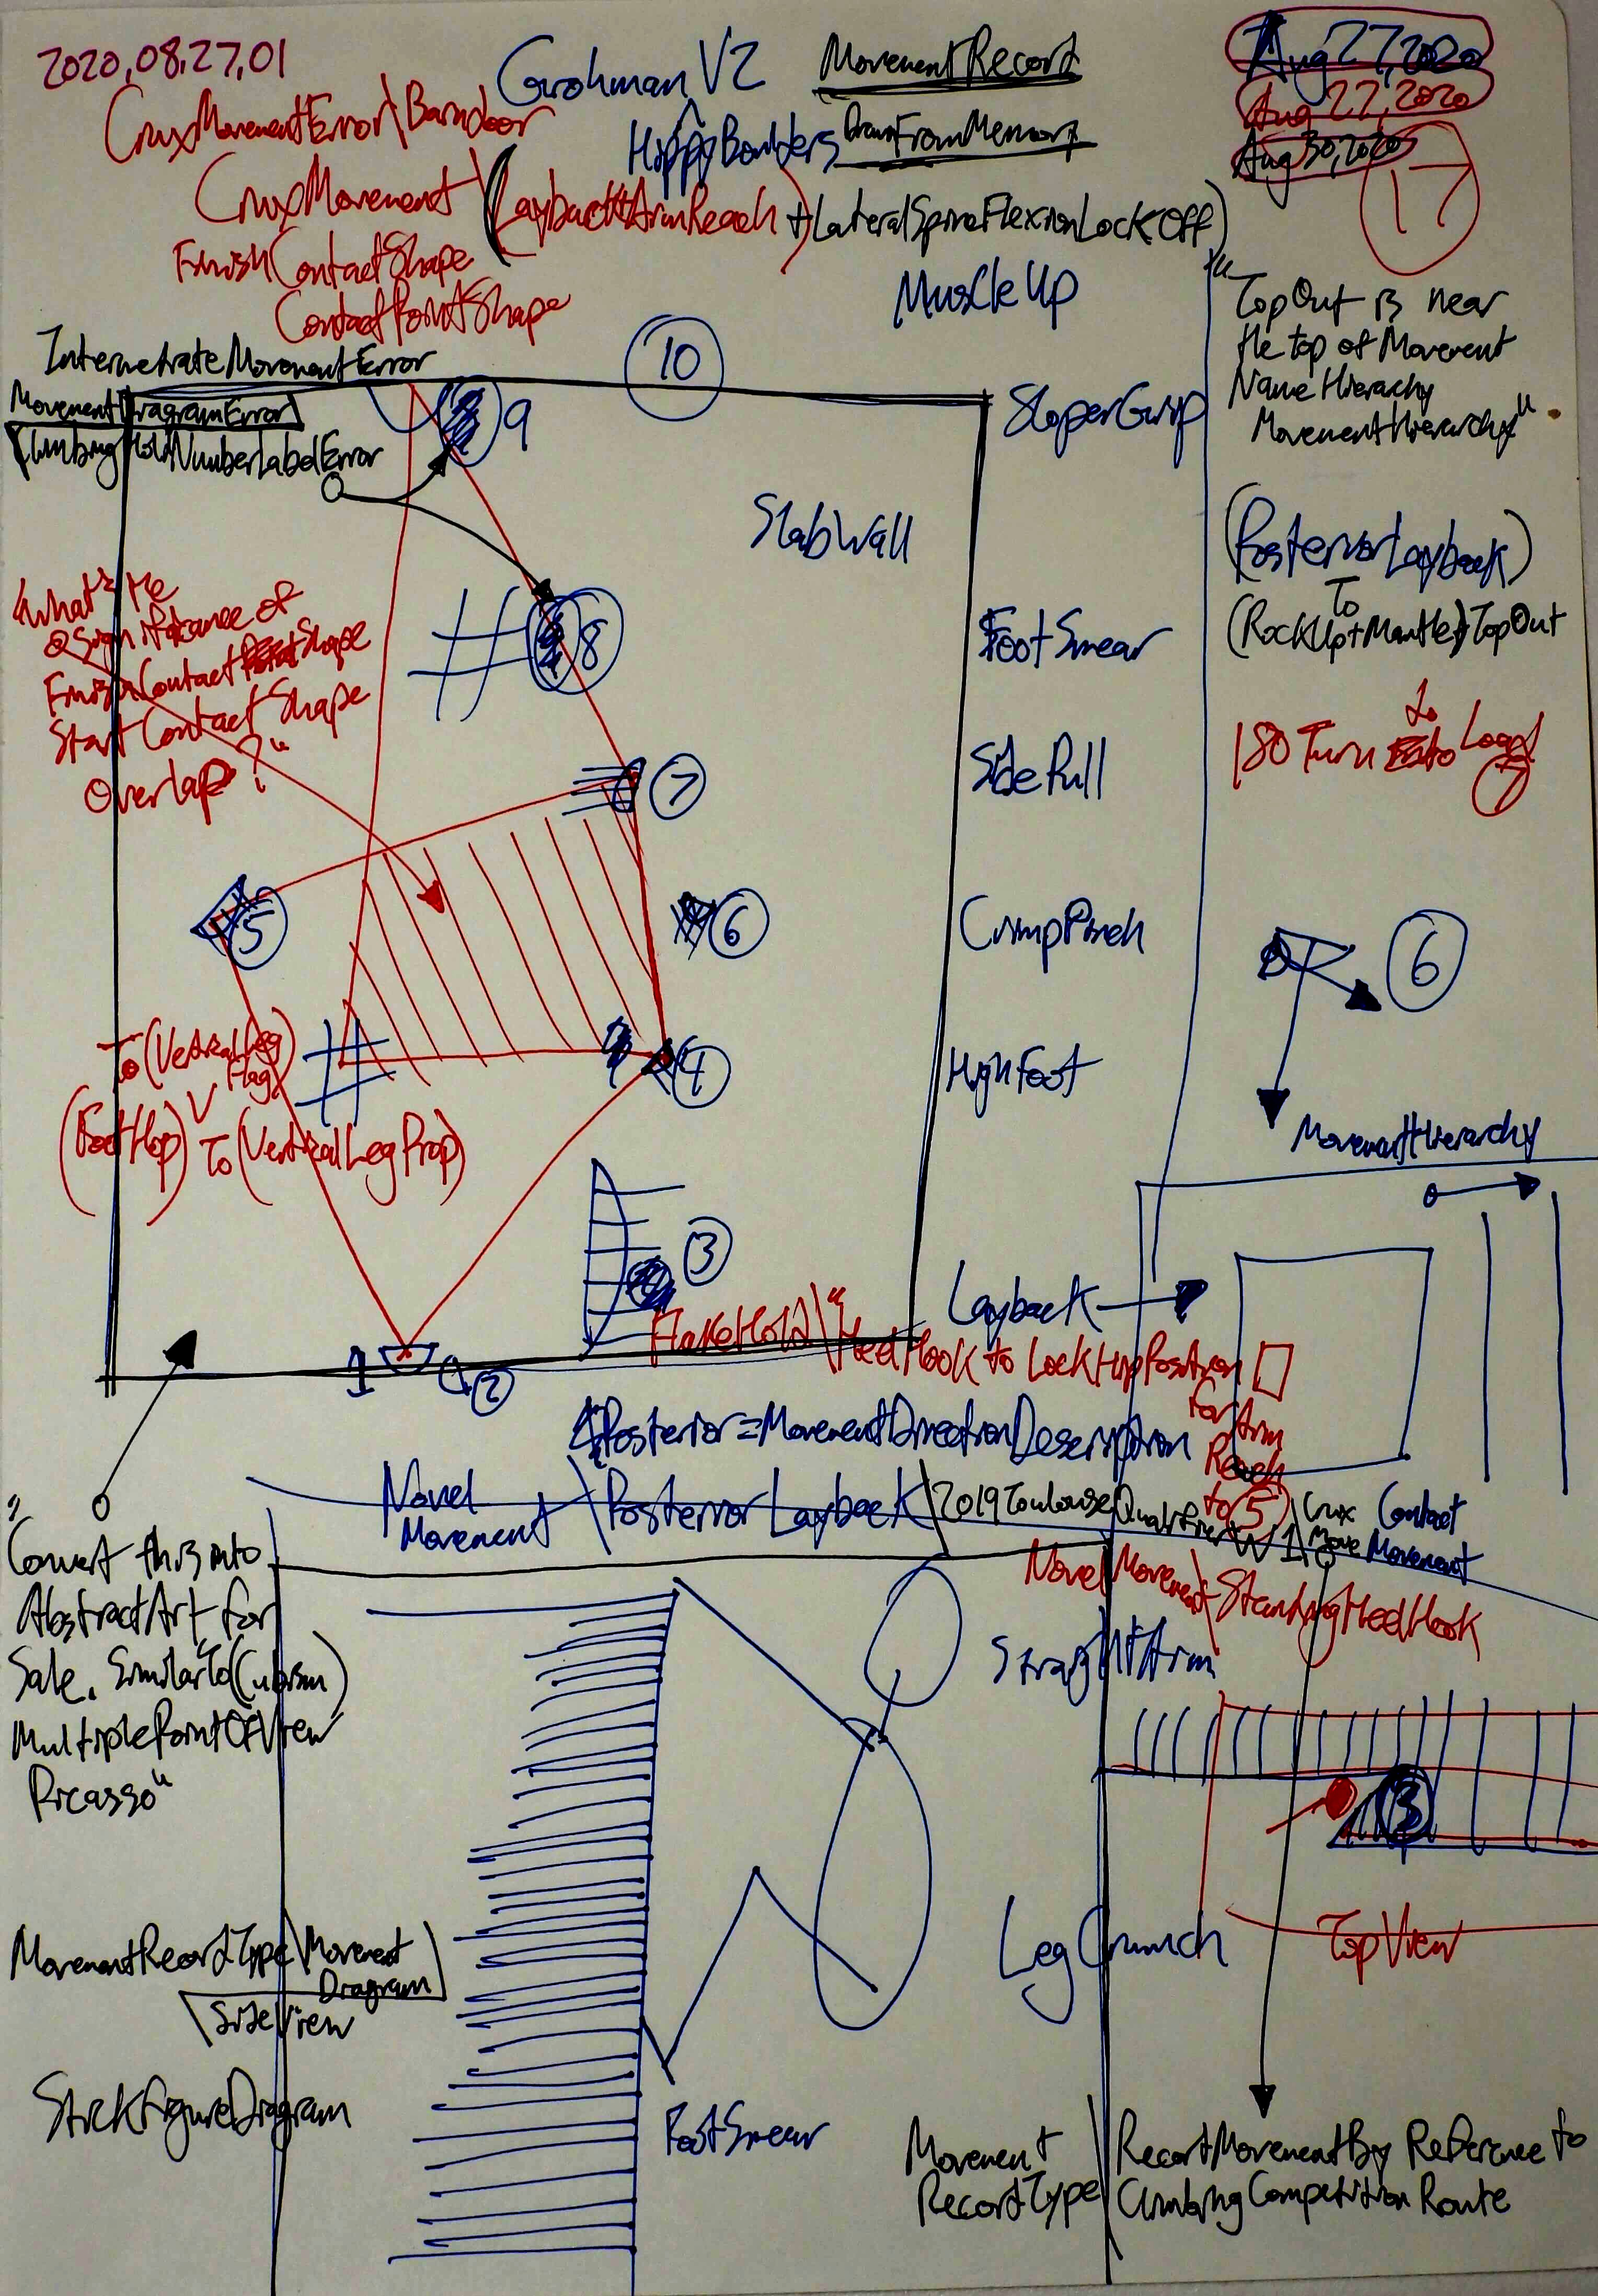 2020,08,27,01
Grohman V2
MovementRecord
Aug 27, 2020
Aug 27, 2020
Aug 30, 2020
17
CruxMovementError\Barndoor
HippyBoulders
DrawnFromMemory
CruxMovement\(Layback+ArmReach)+LateralSpineFlexionLockOff)
FinishContactShape
ContactPointShape
MuscleUp
"TopOut is near
the top of Movement
Name Hierarchy
MovementHierarchy"
IntermediateMovementError
MovementDiagramError
\ClimbingHoldNumberLabelError
10
9
SloperGrip
SlabWall
(PosteriorLayback)
To
(RockUp+Mantle)TopOut
"What's the
significance of
FinishContactShape
StartContactShape
Overlap?"
8
FootSmear
7
SidePull
180 Turn to Load
7
5
6
CrimpPinch
6
To(VerticalLeg
Flag)
(FootHop) V
To (VerticalLegProp)
4
HighFoot
MovementHierarchy
3
Layback
FlakeHold\"HeelHook to LockHipPosition
For Arm
Reach
to (5)
1
2
Posterior=MovementDirectionDescription
Novel
Movement
\PosteriorLayback\2019ToulouseQualifierW1\Crux Contact
Move Movement
NovelMovement\StandingHeelHook
"Convert this into
AbstractArt for
Sale. SimilarTo(Cubism)
MultiplePointOfView
Picasso"
StraightArm
3
LegCrunch
TopView
MovementRecordType\Movement
Diagram
\SideView
StickFigureDiagram
FootSmear
Movement
RecordType
RecordMovementBy Reference to
ClimbingCompetitionRoute